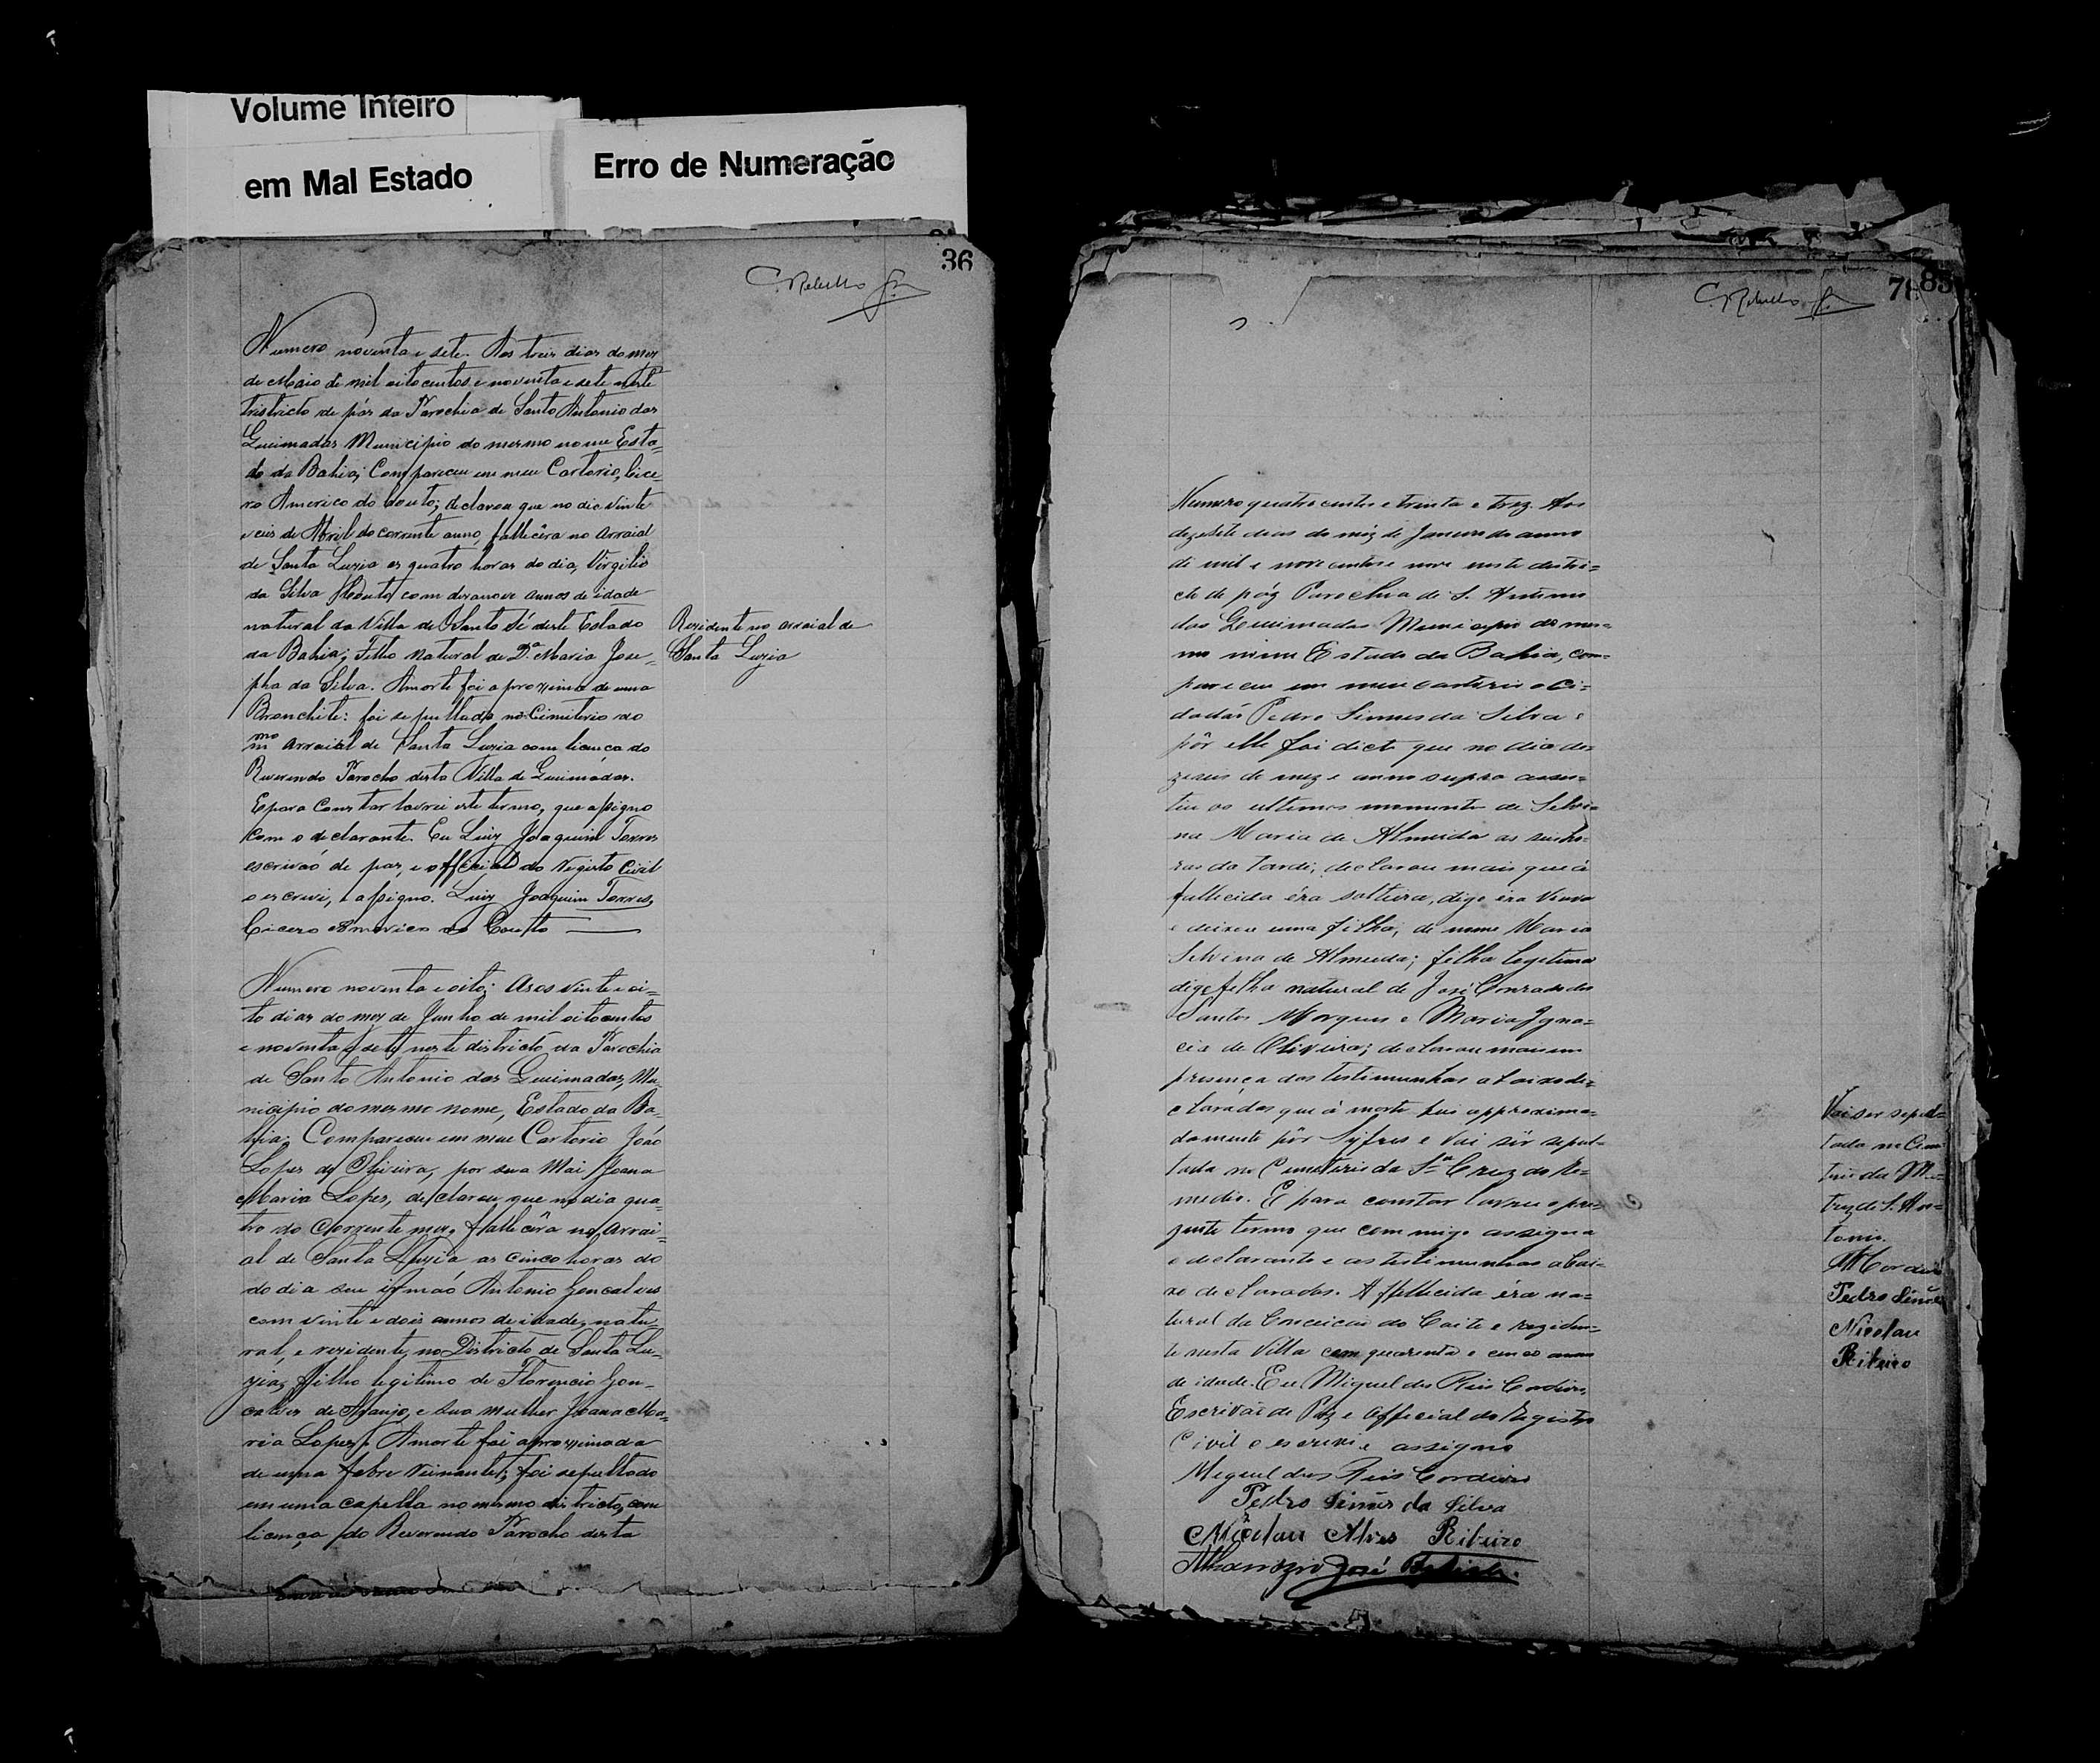 Volume Inteiro
em Mal Estado
Erro de Numeração
36
Numero noventa e sete. Aos treis dias do mez
de Maio de mil oitocentos e noventa e sete neste
Districto de páz da Parochia de Santo Antonio das
Queimadas Municipio do mesmo nome Esta=
do da Bahia; Compareceu em meu Cartorio, Cice-
ro Americo do Couto; declarou que no dia vinte
e seis de Abril do corrente anno, fallecêra no Arraial
de Santa Luzia as quatro horas do dia, Virgilio
da Silva com desanove annos de idade
natural da Villa de Santo Sé deste Estado
da Bahia; Filho natural de D.ª Maria Jose-
pha da Silva. A morte foi aproximada de uma
Bronchite: foi sepultado no Cimiterio do
mmo Arraial de Santa Luzia com licença do
Reverendo Parocho desta Villa de Queimadas.
E para constar lavrei este termo, que assigno
com o declarante. Eu Luiz Joaquim Torres
escrivaõ de paz, e official do Registo Civil
o escrevi, e assigno. Luiz Joaquim Torres,
Cicero Americo do Couto
Residente no arraial de
Santa Luzia
Numero noventa e oito: Aos vinte e oi=
to dias do mez de Junho de mil oitocentos
e noventa e sete neste districto da Parochia
de Santo Antonio das Queimadas, Mu-
nicipio do mesmo nome, Estado da Ba-
hia; Compareceu em meu Cartorio João
Lopes de Oliveira, por sua Mai Joana
Maria Lopes, declarou que no dia qua=
tro do corrente mez, fallecêra no Arrai=
al de Santa Luzia, as cinco horas do
do dia seu irmaõ Antonio Goncalves
com vinte e dois annos de idade, natu-
ral, e residente no Districto de Santa Lu-
zia, filho legitimo de Florencio Gon-
calves de Araujo, e sua mulher Joana Ma-
ria Lopes. A morte foi aproximada
de uma febre; foi sepultado
em uma capella no mesmo districto, com
licença do Reverendo Parocho desta
78
85
Numero quatro centos e trinta e trez. Aos
dezesete dias do mez de Janeiro do anno
de mil e nove centos e nove neste distri=
cto de páz Parochia de S. Antonio
das Queimadas Municipio do mes=
mo nome Estado da Bahia, com=
pareceu em meu cartorio o Ci=
dadão Pedro Simões da Silva e
pôr elle foi dicto que no dia de=
zeseis do mez e anno supra assis=
tiu os ultimos momentos de Selvi=
na Maria de Almeida as seis ho=
ras da tarde; declarou mais que a
fallecida éra solteira, digo éra Viuva
e deixou uma filha, de nome Maria
Selvina de Almeida; filha legitima
digo filha natural de José Conrado dos
Santos Marques e Maria Igna=
cia de Oliveira; declarou mais em
presença das testimunhas abaixo de=
claradas que a morte foi approxima=
damente pôr Syfres e vai sêr sepul=
tada no Cemiterio da Sta Cruz do Re=
medio. E para constar lavrei o pre=
zente termo que commigo assigna
o declarante e as testimunhas abai=
xo declaradas. A fallecida éra na=
tural de Conceicão do Coite e rezeden=
te nesta Villa com quarenta e cinco annos
de idade. Eu Miguel dos Reis Cordeiro,
Escrivão de Paz e Official do Registro
Civil o escrevi e assigno
Miguel dos Reis Cordeiro
Pedro Simões da Silva
Nicolau Alves Ribeiro
Athanazio José Batista.
Vai ser sepul=
tada no Cemi=
terio da Ma=
triz de S. An=
tonio.
MCordeiro
Pedro Simões
Nicolau
Ribeiro